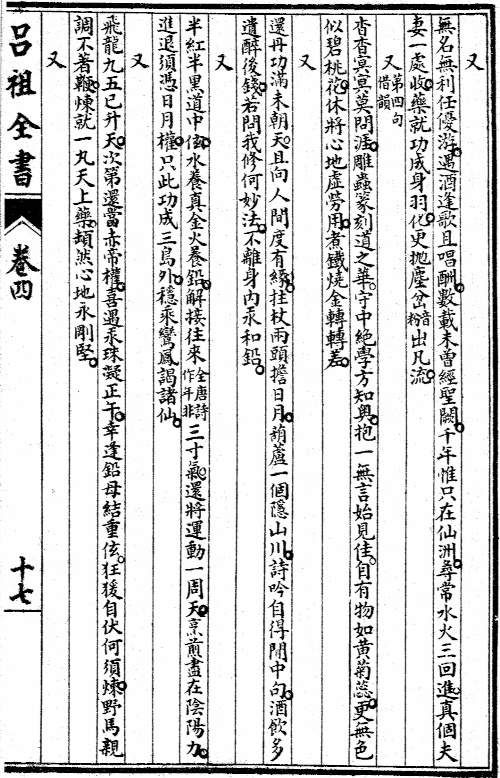 又
無名無利任優游。遇酒逢歌且唱酬。數載未曾經聖闕。千年惟只在仙洲。尋常水火三回進。真個夫
妻一處收。藥就功成身羽化。更拋塵坌音粉出凡流。
又 第四句借韻
杳杳冥冥莫問涯。雕蟲篆刻道之華。守中絕學方知奧。抱一無言始見佳。自有物如黃菊蕊。更無色
似碧桃花。休將心地虛勞用。煮鐵燒金轉轉差。
又
還丹功滿未朝天。且向人間度有緣。拄杖兩頭擔日月。葫蘆一個隱山川。詩吟自得閒中句。酒飲多
遺醉後錢。若問我修何妙法。不離身內汞和鉛。
又
半紅半黑道中伭。水養真金火養鉛。解接往來全唐詩作年非三寸氣。還將運動一周天。烹煎盡在陰陽力。
進退須憑日月權。只此功成三島外。穩乘鸞鳳謁諸仙。
又
飛龍九五已升天。次第還當赤帝權。喜遇汞珠凝正午。幸逢鉛母結重伭。狂猿自伏何須煉。野馬親
調不著鞭。煉就一丸天上藥。頓然心地永剛堅。
又
呂祖全書 卷四 十七